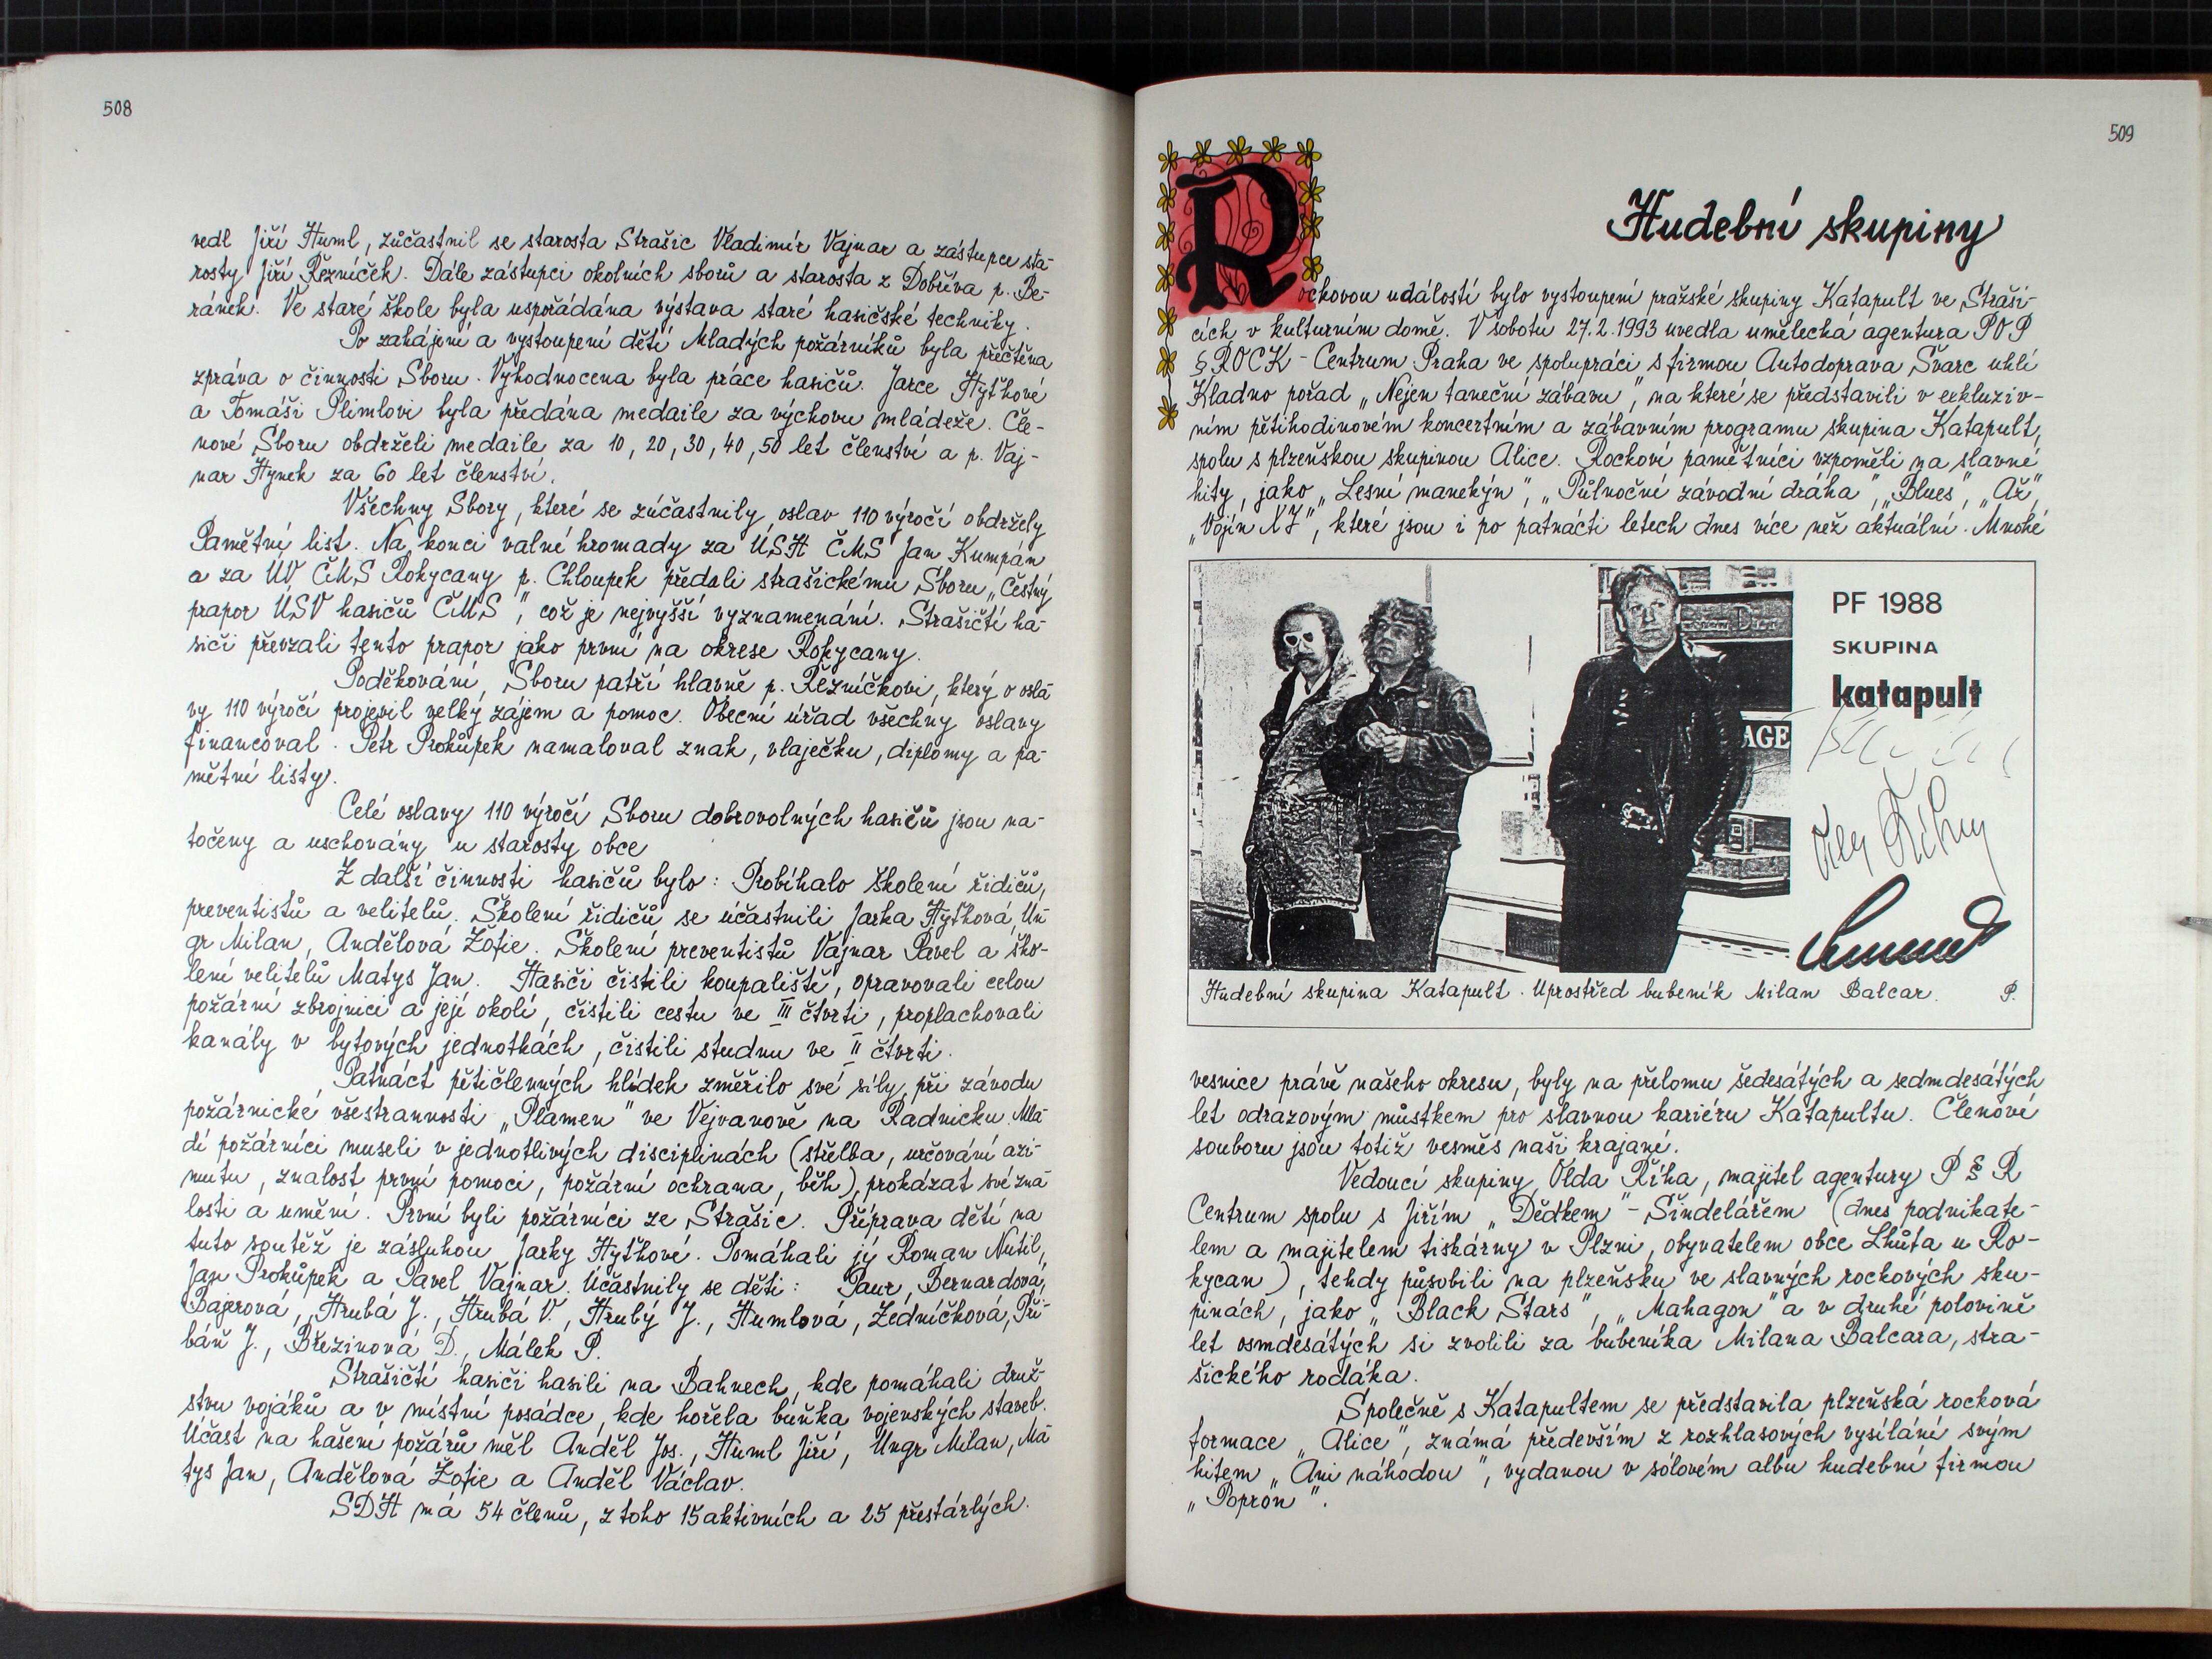 508
vedl Jiří Huml, zůčastnil se starosta Strašic Vladimír Vajnar a zástupce sta-
rosty Jiří Řezníček. Dále zástupci okolních sborů a starosta z Dobříva p. Be-
ránek. Ve staré škole byla uspořádána výstava staré hasičské techniky.
Po zahájení a vystoupení dětí Mladých požárníků byla přečtena
zpráva o činnosti Sboru. Vyhodnocena byla práce hasičů. Jarce Hyťhové
a Tomáši Plimlovi byla předána medaile za výchovu mládeže. Čle-
nové Sboru obdrželi medaile za 10, 20, 30, 40, 50 let členství a p. Vaj-
nar Hynek za 60 let členství.
Všechny Sbory, které se zúčastnily oslav 110 výročí obdržely
Pamětní list. Na konci valné hromady za ÚSH ČMS Jan Kumpán
a za ÚV ČMS Rokycany p. Chloupek předali strašickému Sboru „Čestný
prapor ÚSV hasičů ČMS", což je nejvyšší vyznamenání. Strašičtí ha-
siči převzali tento prapor jako první na okrese Rokycany.
Poděkování Sboru patří hlavně p. Řezníčkovi, který o osla
vy 110 výročí projevil velký zájem a pomoc. Obecní úřad všechny oslavy
financoval. Petr Prokůpek namaloval znak, vlaječku, diplomy a pa-
mětní listy.
Celé oslavy 110 výročí Sboru dobrovolných hasičů jsou na-
točeny a uschovány u starosty obce
Z další činnosti hasičů bylo: Probíhalo školení řidičů,
preventistů a velitelů. Školení řidičů se účastnili Jarka Hyťhová, Un
gr Milan, Andělová Žofie. Školení preventistů Vajnar Pavel a ško-
lení velitelů Matys Jan. Hasiči čistili koupaliště, opravovali celou
požární zbrojnici a její okolí, čistili cestu ve III čtvrti, proplachovali
kanály v bytových jednotkách, čistili studnu ve II čtvrti.
Patnáct pětičlenných hlídek změřilo své síly při závodu
požárnické všestrannosti „Plamen" ve Vejvanově na Radnicku. Mla
dí požárníci museli v jednotlivých disciplinách (střelba, určování azi-
mutu, znalost první pomoci, požární ochrana, běh), prokázat své zna
losti a umění. První byli požárníci ze Strašic. Příprava dětí na
tuto soutěž je zásluhou Jarky Hyťhové. Pomáhali jý Roman Nutil,
Jan Prokůpek a Pavel Vajnar. Účastnily se děti: Paur, Bernardová,
Bajerová, Hrubá J., Hrubá V., Hrubý J., Humlová, Zedníčková, Při-
báň J., Březinová D., Málek P.
Strašičtí hasiči hasili na Bahnech, kde pomáhali druž-
stvu vojáků a v místní posádce, kde hořela buňka vojenských staveb.
Účast na hašení požárů měl Anděl Jos., Huml Jiří, Ungr Milan, Ma
tys Jan, Andělová Žofie a Anděl Václav.
SDH má 54 členů, z toho 15 aktivních a 25 přestárlých.
509
Hudební skupiny
Rockovou událostí bylo vystoupení pražské skupiny Katapult ve Straši-
cích v kulturním domě. V sobotu 27.2.1993 uvedla umělecká agentura POP
§ ROCK - Centrum Praha ve spolupráci s firmou Autodoprava Švarc uhlí
Kladno pořad „Nejen taneční zábavu", na které se představili v exkluziv-
ním pětihodinovém koncertním a zábavním programu skupina Katapult,
spolu s plzeňskou skupinou Alice. Rockoví pamětníci vzpoměli na slavné
hity, jako „Lesní manekýn", „Půlnoční závodní dráha", „Blues", „Až",
„Vojín XY", které jsou i po patnácti letech dnes více než aktuální. Mnohé
PF 1988
SKUPINA
katapult
AGE
Olda Říha
Hudební skupina Katapult. Uprostřed bubeník Milan Balcar. P.
vesnice právě našeho okresu, byly na přelomu šedesátých a sedmdesátých
let odrazovým můstkem pro slavnou kariéru Katapultu. Členové
souboru jsou totiž vesměs naši krajané.
Vedoucí skupiny Olda Říha, majitel agentury P § R
Centrum spolu s Jiřím „Dědkem" - Šindelářem (dnes podnikate-
lem a majitelem tiskárny v Plzni, obyvatelem obce Lhůta u Ro-
kycan), tehdy působili na plzeňsku ve slavných rockových sku-
pinách, jako „Black Stars", „Mahagon" a v druhé polovině
let osmdesátých si zvolili za bubeníka Milana Balcara, stra-
šického rodáka.
Společně s Katapultem se představila plzeňská rocková
formace „Alice", známá především z rozhlasových vysílání svým
hitem „Ani náhodou", vydanou v sólovém albu hudební firmou
„Popron".